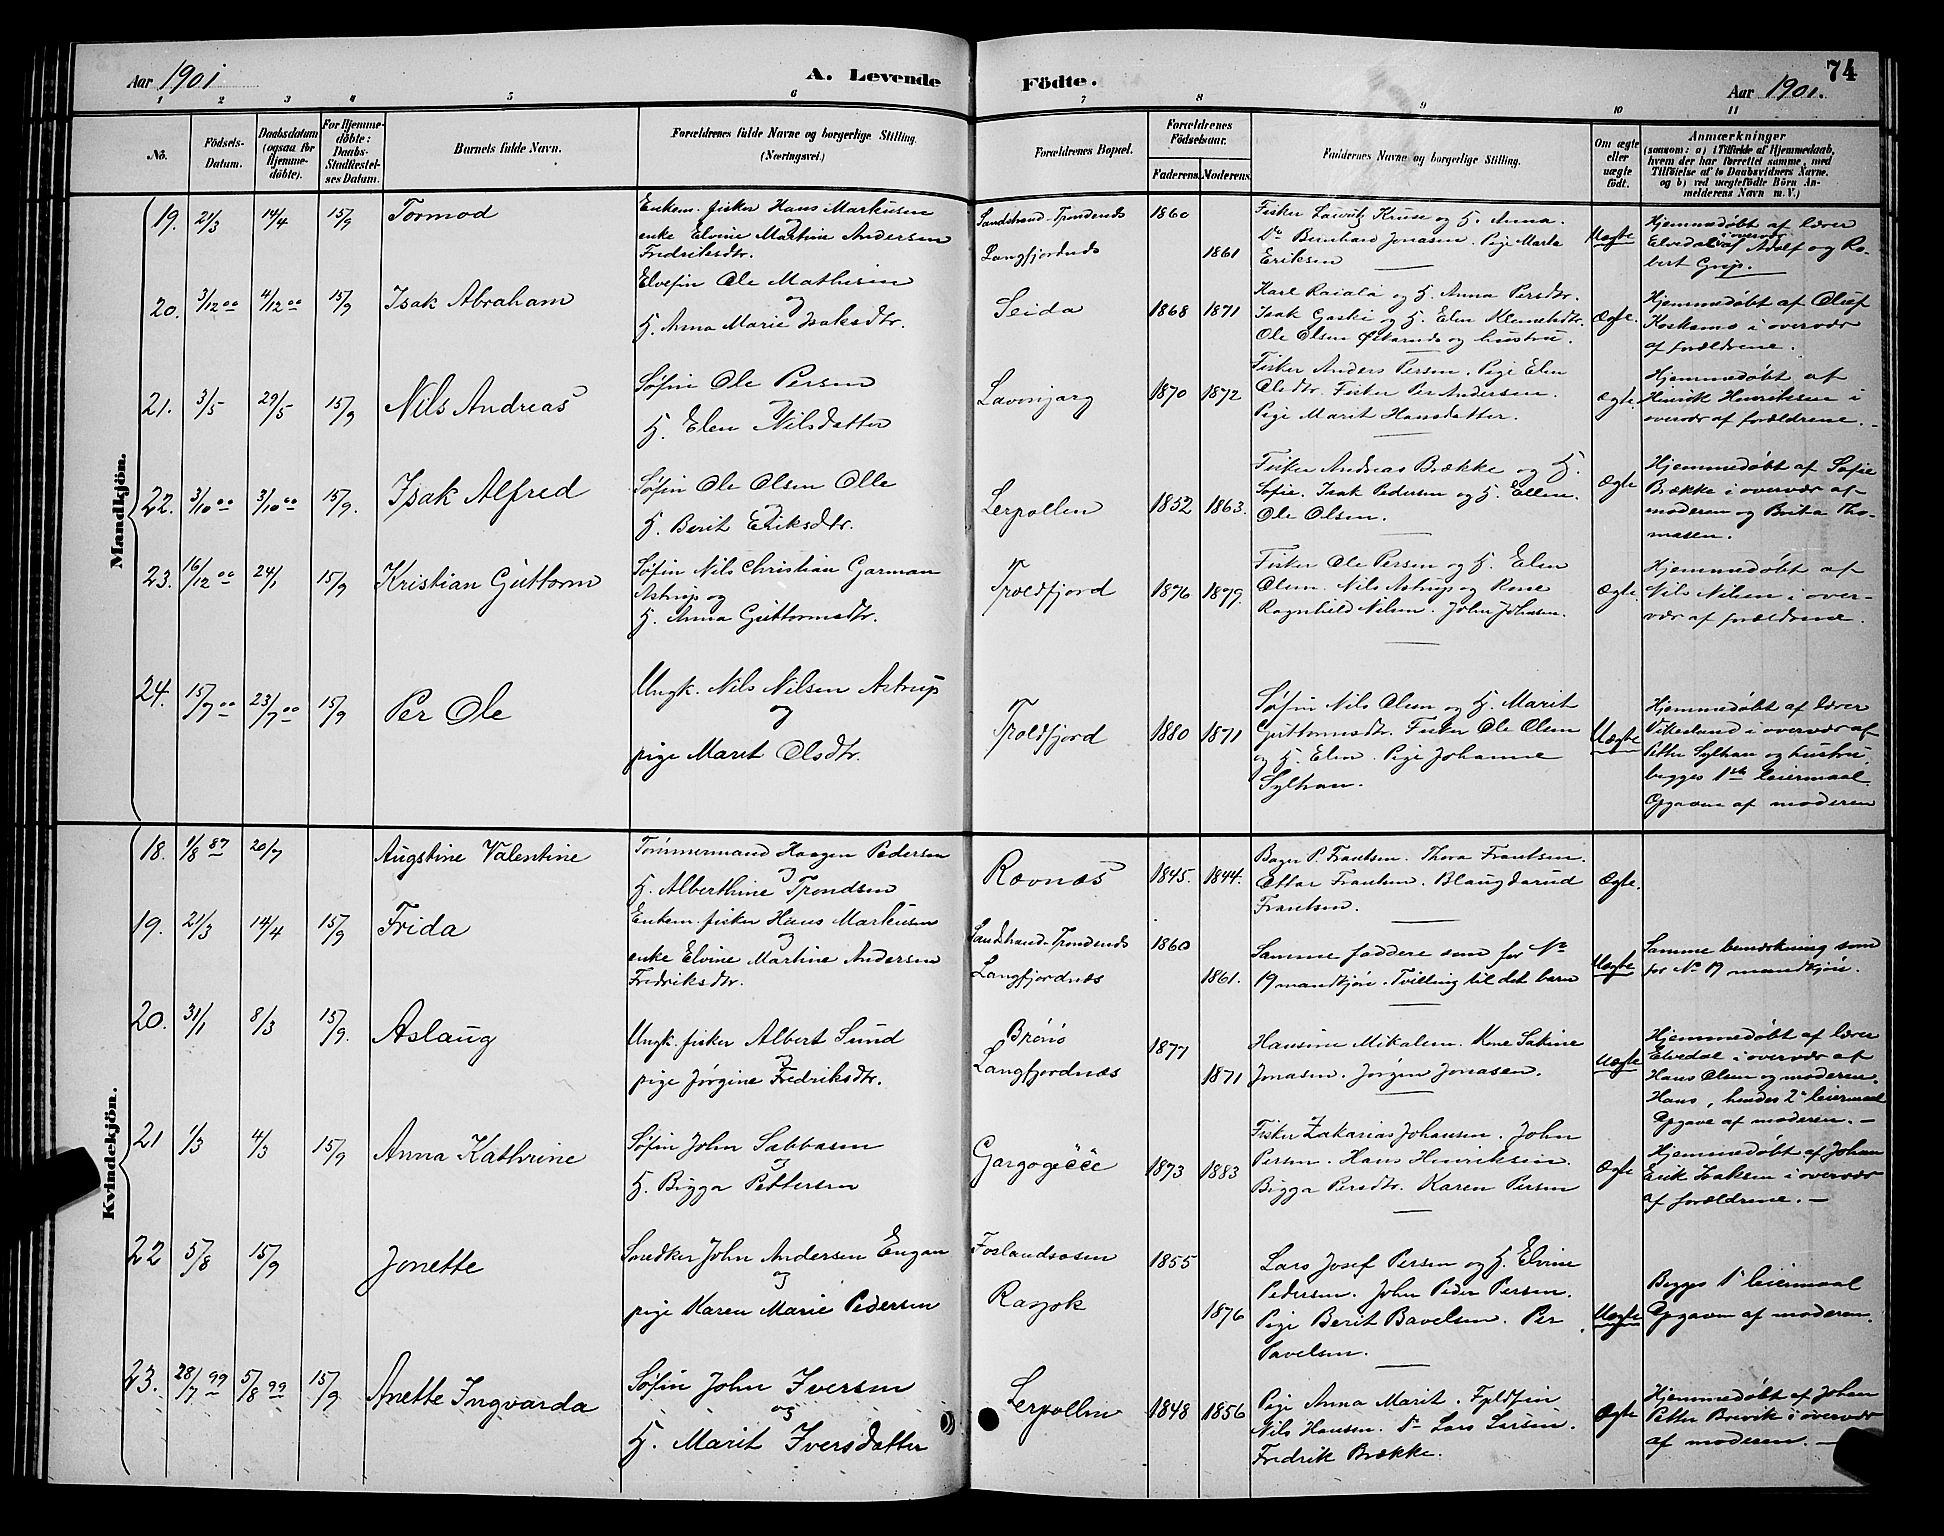 Aar 1901
A. Levende Födte.
Aar 1901.
74
1 2 3 4 5 6 7 8 9 10 11
No.
Födsels-Datum.
Daabsdatum (ogsaa for Hjemme-döbte).
For Hjemme-döbte: Daabs-Stadfæstel-ses Datum.
Barnets fulde Navn.
Forældrenes fulde Navne og borgerlige Stilling. (Næringsvei.)
Forældrenes Bopæl.
Forældrenes Födselsaar.
Faderens. Moderens.
Faddernes Navne og borgerlige Stilling.
Om ægte eller uægte födt.
Anmærkninger
(saasom: a) i Tilfælde af Hjemmedaab,
hvem der har forrettet samme, med
Tilföielse af to Daabsvidners Navne.
og b) ved uægtefödte Börn An-
melderens Navn m. V.)
Mandkjön.
19. 21/3 14/4 15/9 Tormod
Enkem. fisker Hans Markusen
og
enke Elvine Martine Andersen
Fredriksdtr.
Sandstrand-Trondenæs
Langfjordnæs
1860
1861
Fisker Lauritz Kruse og H. Anna.
Do Bernhard Jonasen. Pige Marta
Eriksen
Uægte
Hjemmedøbt af lærer
Elvedal i overvær af Adolf og Ro-
bert Grip.
20. 3/12 00 4/12 00 15/9 Isak Abraham
Elvefin Ole Mathisen
og
H. Anna Marie Isaksdtr.
Seida
1868 1871
Karl Raiala og H. Anna Persdtr.
Isak Gaski og H. Elen Klemetsdtr.
Ole Olsen Østernæs og hustru.
Ægte.
Hjemmedøbt af Oluf
Koskamo i overvær
af forældrene.
21. 3/5 29/5 15/9 Nils Andreas
Søfin Ole Persen
og
H. Elen Nilsdatter
Lavonjarg
1870 1872
Fisker Anders Persen. Pige Elen
Olsdtr. Fisker Per Andersen.
Pige Marit Hansdatter.
Ægte.
Hjemmedøbt af
Henrik Henriksen i
overvær af forældrene.
22. 3/10 00 3/10 00 15/9. Isak Alfred
Søfin Ole Olsen Olle
og
H. Berit Eriksdtr.
Lerpollen
1852 1863.
Fisker Andreas Brække og H.
Sofie. Isak Pedersen og H. Ellen.
Ole Olsen.
Ægte
Hjemmedøbt af Sofie
Brække i overvær af
moderen og Brita Tho-
masen.
23. 16/12 00 24/1 15/9 Kristian Guttorm
Søfin Nils Christian Garman
Astrup og
H. Anna Guttormsdtr.
Troldfjord
1876 1879.
Fisker Ole Persen og H. Elen
Olsen. Nils Astrup og Kone
Ragnhild Nilsen. John Johnsen.
Ægte.
Hjemmedøbt af
Nils Nilsen i over-
vær af forældrene.
24. 15/7 00 23/7 00 15/9 Per Ole
Ungk. Nils Nilsen Astrup
og
pige Marit Olsdtr.
Troldfjord
1880 1871
Søfin Nils Olsen og H. Marit
Guttormsdtr. Fisker Ole Olsen
og H. Elen. Pige Johanne
Sylhan.
Uægte
Hjemmedøbt af lærer
i overvær af
Petter Sylhan og hustru.
begges 1ste leiermaal
Opgaven af moderen
Kvindekjön.
18. 1/8 87 20/7 Augstine Valentine
Tømmermand Haagen Pedersen
og
H. Alberthine Trondsen
Ravnæs
1845. 1844.
Bager P. Frantsen. Thora Frantsen.
Ottar Frantsen. Blaugdarud
Frantsen.
Ægte.
19. 21/3 14/4 15/9 Frida
Enkem. fisker Hans Markusen
og
enke Elvine Martine Andersen
Fredriksdtr.
Sandstrand-Trondenæs
Langfjordnæs
1860
1861.
Samme faddere som for No
19 mandkjøn. Tvilling til det barn
Uægte
Samme bemærkning som
for No 19 mandkjøn.
20. 31/1 8/3 15/9. Aslaug
Ungk. fisker Albert Sund
og
pige Jørgine Fredriksdtr.
Brønø
Langfjordnæs
1877
1871
Hansine Mikalsen. Kone Sakine
Jonasen. Jørgen Jonasen.
Uægte
Hjemmedøbt af lærer
Elvedal i overvær af
Hans Olsen og moderen.
Hans, hendes 2et leiermaal
Opgave af moderen.
21 1/3 4/3 15/9 Anna Kathrine
Søfin John Sabbasen
og
H. Bigga Pettersen
Gargogečče
1873 1883
Fisker Zakarias Johansen. John
Persen. Hans Henriksen.
Bigga Persdtr. Karen Persen
Ægte
Hjemmedøbt af Johan
Erik Isaksen i overvær
af forældrene.
22 5/8 15/9 Jonette
Snedker John Andersen Engan
og
pige Karen Marie Pedersen
Foslandsosen
Rasjok
1855
1876
Lars Josef Persen og H. Elvine
Pedersen. John Peder Persen.
Pige Berit Bavelsen. Per
Pavelsen.
Uægte
Begges 1ste leiermaal
Opgaven af moderen.
23. 28/7 99 5/8 99 15/9 Anette Ingvarda
Søfin John Iversen
og
H. Marit Iversdatter
Lerpollen
1848 1856
Pige Anna Marit. Fjeldfin
Nils Hansen. Do Lars Larsen.
Fredrik Brække.
Ægte
Hjemmedøbt af Johan
Petter Brevik i overvær
af moderen.